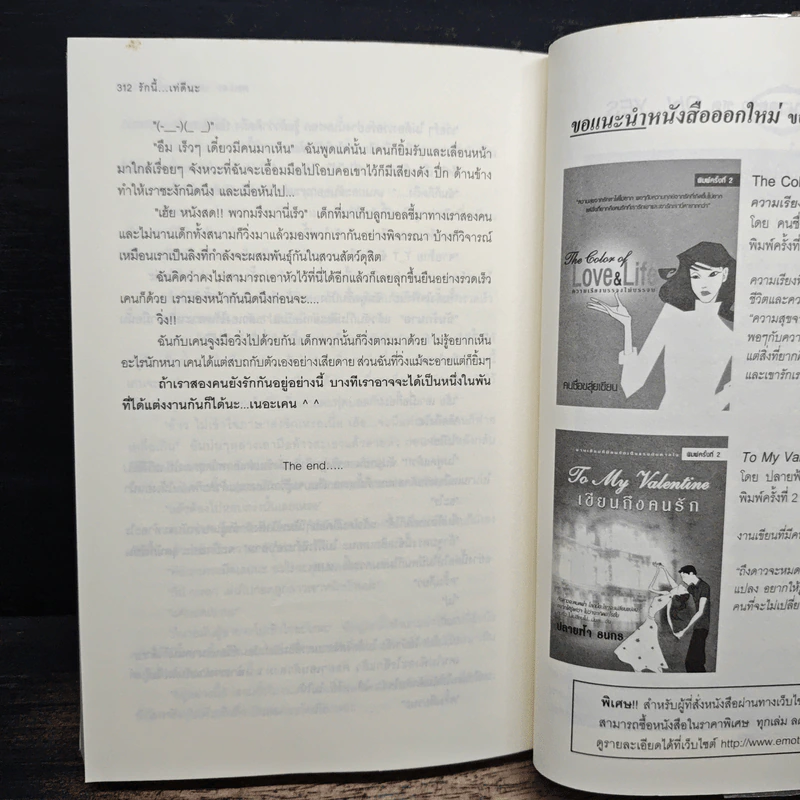 312 รักนี้...เท่ดีนะ
"(-__-)(_ _)"
"อืม เร็วๆ เดี๋ยวมีคนมาเห็น" ฉันพูดแค่นั้น เคนก็ยิ้มรับและเลื่อนหน้า
มาใกล้เรื่อยๆ จังหวะที่ฉันจะเอื้อมมือไปโอบคอเขาไว้ก็มีเสียงดัง ปึก ด้านข้าง
ทำให้เราชะงักนิดนึง และเมื่อหันไป...
"เฮ้ย หนังสด!! พวกมรึงมานี่เร็ว" เด็กที่มาเก็บลูกบอลชี้มาทางเราสองคน
และไม่นานเด็กทั้งสนามก็วิ่งมาแล้วมองพวกเรากันอย่างพิจารณา บ้างก็วิจารณ์
เหมือนเราเป็นลิงที่กำลังจะผสมพันธุ์กันในสวนสัตว์ดุสิต
ฉันคิดว่าคงไม่สามารถเอาหัวไว้ที่นี่ได้อีกแล้วก็เลยลุกขึ้นยืนอย่างรวดเร็ว
เคนก็ด้วย เรามองหน้ากันนิดนึงก่อนจะ....
วิ่ง!!
ฉันกับเคนจูงมือวิ่งไปด้วยกัน เด็กพวกนั้นก็วิ่งตามมาด้วย ไม่รู้อยากเห็น
อะไรนักหนา เคนได้แต่สบถกับตัวเองอย่างเสียดาย ส่วนฉันที่วิ่งแม้จะอายแต่ก็ยิ้มๆ
ถ้าเราสองคนยังรักกันอยู่อย่างนี้ บางทีเราอาจจะได้เป็นหนึ่งในพัน
ที่ได้แต่งงานกันก็ได้นะ...เนอะเคน ^ ^
The end.....
ขอแนะนำหนังสือออกใหม่
พิมพ์ครั้งที่ 2
The Color of
Love & Life
คนชื่อขลุ่ยเขียน
The Col
ความเรียง
โดย คนชื่
พิมพ์ครั้งที่ 2
ความเรียง
ชีวิตและคว
"ความสุขจ
พอๆกับควา
แต่สิ่งที่ยาก
และเขารักเ
พิมพ์ครั้งที่ 2
To My Valentine
เขียนถึงคนรัก
ปลายฟ้า ธนกร
To My Val
โดย ปลายฟ้
พิมพ์ครั้งที่ 2
งานเขียนที่มีค
"ถึงดาวจะหมด
แปลง อยากให้
คนที่จะไม่เปลี่ย
พิเศษ!! สำหรับผู้ที่สั่งหนังสือผ่านทางเว็บไซ
สามารถซื้อหนังสือในราคาพิเศษ ทุกเล่ม
ดูรายละเอียดได้ที่เว็บไซต์ http://www.emot